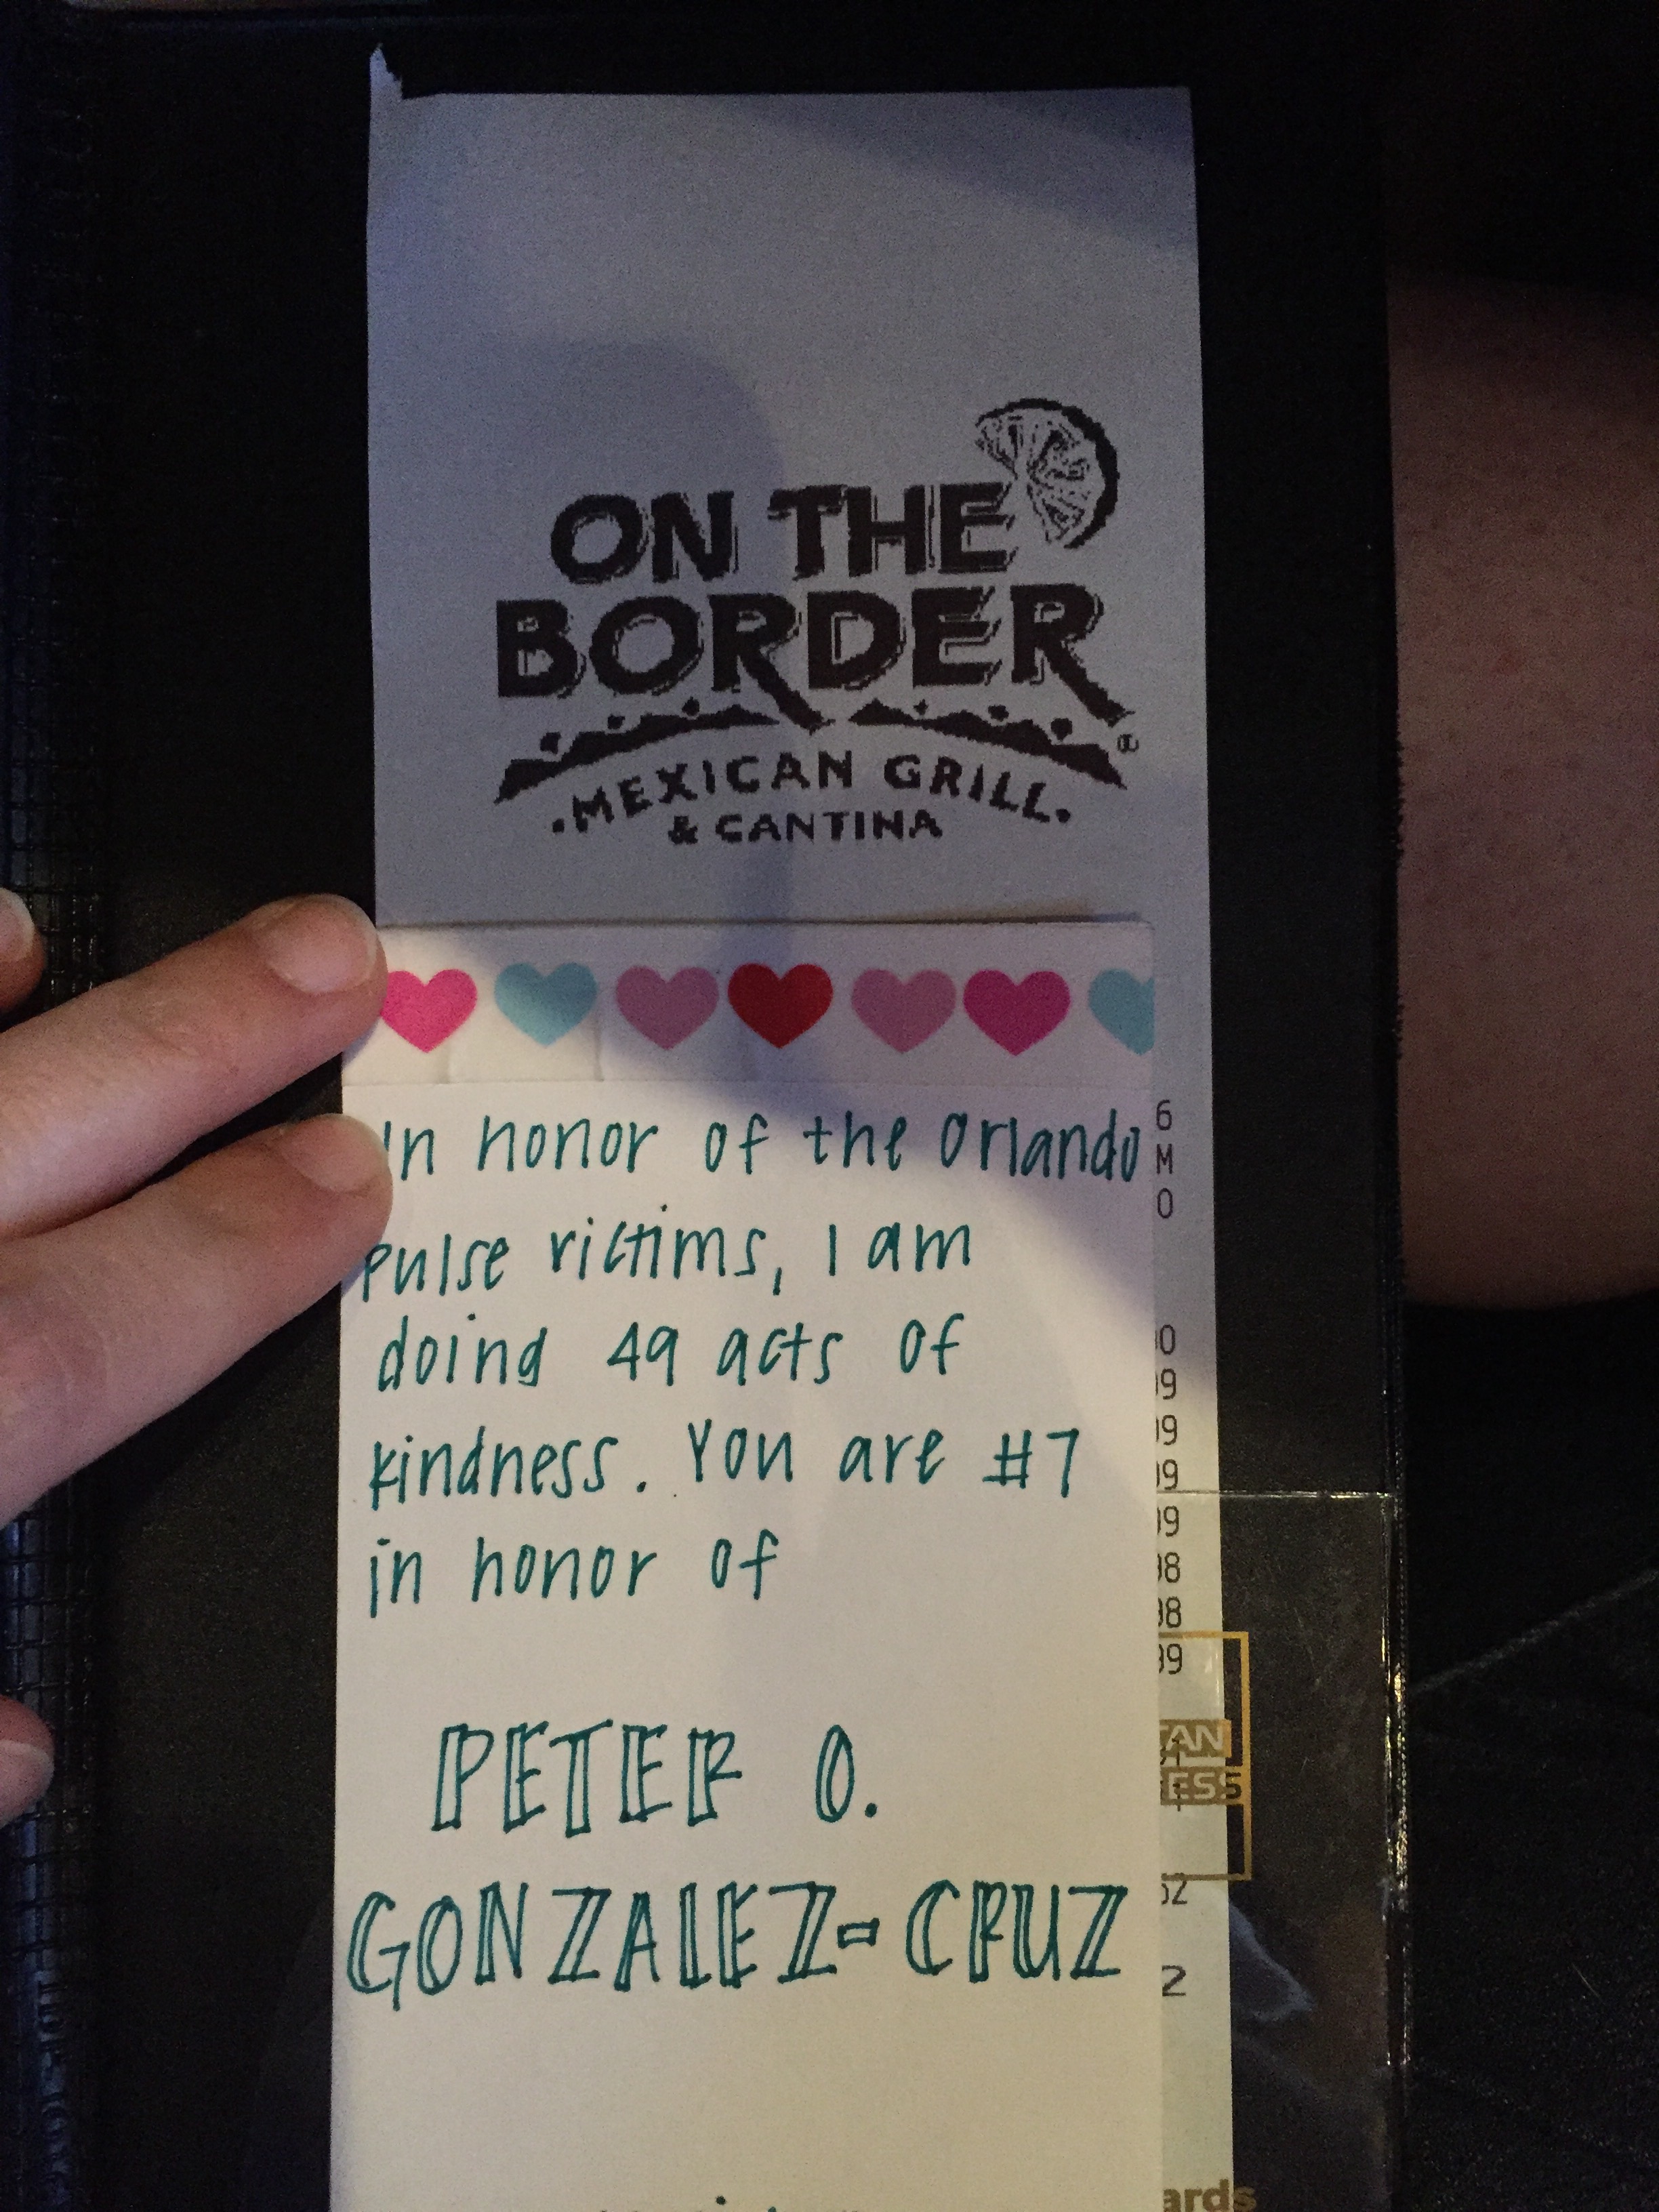 ON THE
BORDER
®
·MEXICAN GRILL·
& CANTINA
In honor of the Orlando
pulse victims, I am
doing 49 acts of
kindness. You are #7
in honor of
PETER O.
GONZALEZ-CRUZ
6
M
0
0
99
99
99
99
98
98
99
TAN
ESS
52
2
ards